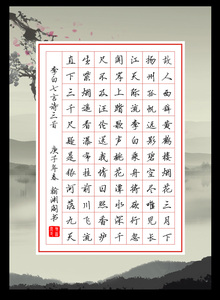 故人西辞黄鹤楼烟花三月下
扬州孤帆远影碧空尽唯见长
江天际流李白乘舟将欲行忽
闻岸上踏歌声桃花潭水深千
尺不及汪伦送我情日照香炉
生紫烟遥看瀑布挂前川飞流
直下三千尺疑是银河落九天
李白七言诗三首
庚子年春